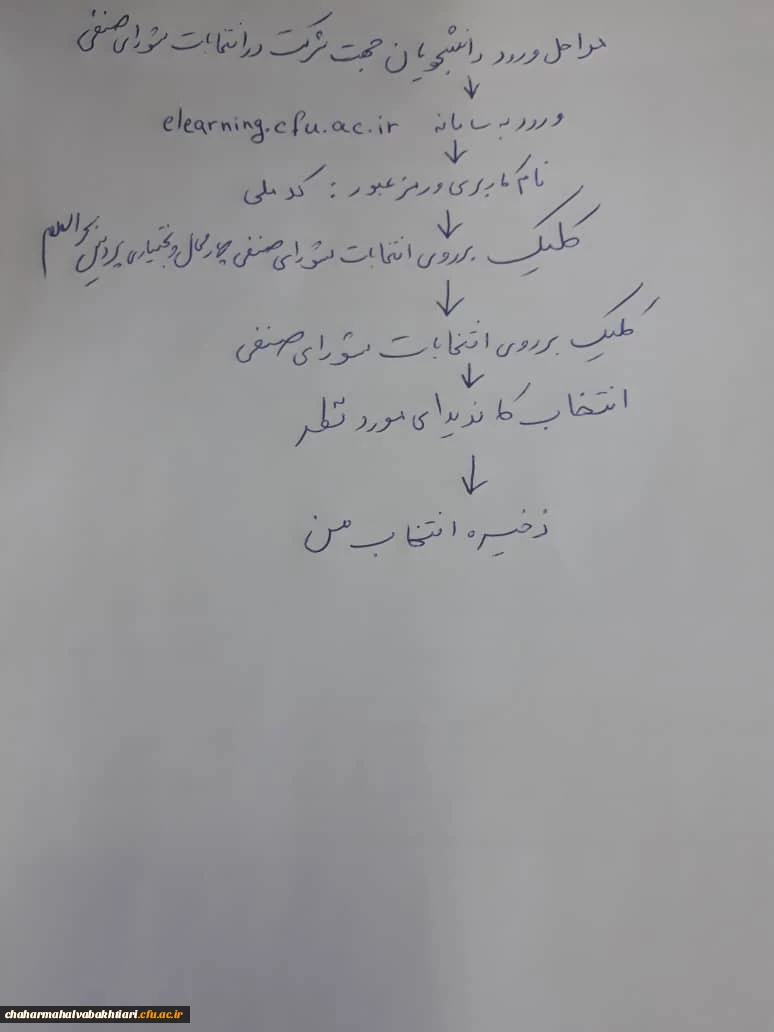 مراحل ورود دانشجویان جهت شرکت در انتخابات شورای صنفی
ورود به سامانه elearning.cfu.ac.ir
نام کاربری و رمز عبور : کد ملی
کلیک بر روی انتخابات شورای صنفی چهارمحال و بختیاری پردیس بحرالعلوم
کلیک بر روی انتخابات شورای صنفی
انتخاب کاندیدای مورد نظر
ذخیره انتخاب من
chaharmahalvabakhtiari.cfu.ac.ir